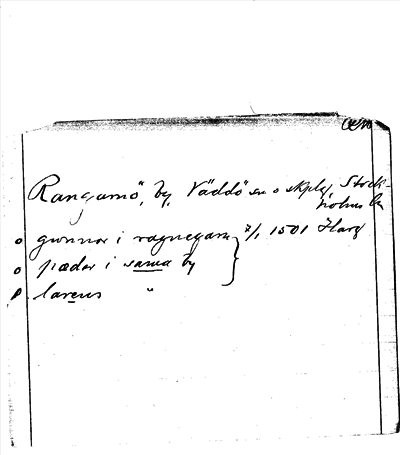 Rangarnö, by, Väddö sn o skplg, Stock-
holms län
o gunnor i ragnegarn } 7/1 1501 Harg
o pædar i sama by
o larens "